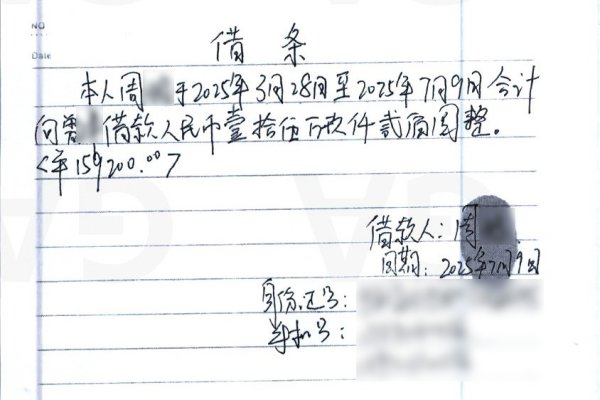 NO
Date
借条
本人周 于2025年3月28日至2025年7月9日合计
向曾 借款人民币壹拾伍万玖仟贰佰圆整。
<¥159200.00>
借款人：周
日期：2025年7月9日
身份证号：
手机号：